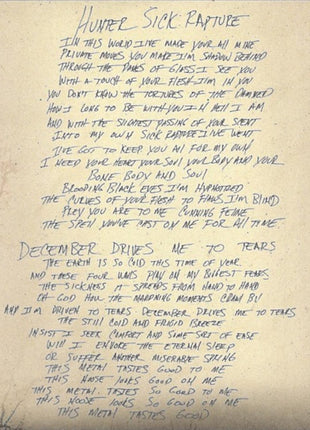 HUNTER SICK RAPTURE
IN THIS WORLD I'VE MADE YOUR ALL MINE
PRIVATE MOVES YOU MAKE I'M SHADOW BEHIND
THROUGH THE PANES OF GLASS I SEE YOU
WITH A TOUCH OF YOUR FLESH I'M IN YOU
YOU DON'T KNOW THE TORTURES OF THE DAMNED
HOW I LONG TO BE WITH YOU IN HELL I AM
AND WITH THE SLIGHTEST PASSING OF YOUR SCENT
INTO MY OWN SICK RAPTURE I'VE WENT
I'VE GOT TO KEEP YOU ALL FOR MY OWN
I NEED YOUR HEART YOUR SOUL YOUR BODY AND YOUR
BONE BODY AND SOUL
BROODING BLACK EYES I'M HYPNOTIZED
THE CURVES OF YOUR FLESH TO FLAWS I'M BLIND
PREY YOU ARE TO ME CUNNING FELINE
THE SPELL YOU'VE CAST ON ME FOR ALL TIME.
DECEMBER DRIVES ME TO TEARS
THE EARTH IS SO COLD THIS TIME OF YEAR
AND THESE FOUR WALLS PLAY ON MY BIGGEST FEARS
THE SICKNESS IT SPREADS FROM HAND TO HAND
OH GOD HOW THE MADDENING MOMENTS CRAWL BY
AND I'M DRIVEN TO TEARS DECEMBER DRIVES ME TO TEARS
THE STILL COLD AND FRIGID BREEZE
INSIST I SEEK COMFORT AND SOME SORT OF EASE
WILL I ENDURE THE ETERNAL SLEEP
OR SUFFER ANOTHER MISERABLE SPRING
THIS METAL TASTES GOOD TO ME
THIS NOOSE LOOKS GOOD ON ME
THIS METAL TASTES SO GOOD TO ME
THIS NOOSE LOOKS SO GOOD ON ME
THIS METAL TASTES GOOD